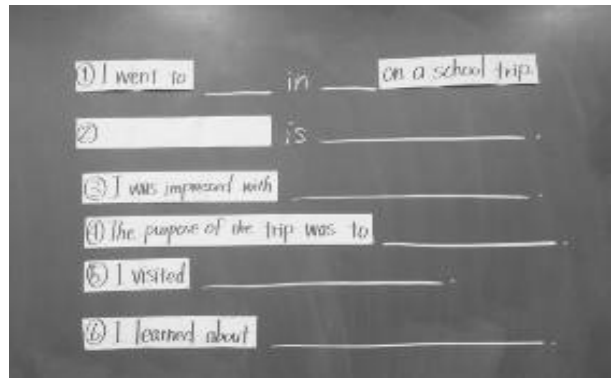 ① I went to ____ in ____ on a school trip.
② ____ is ____.
③ I was impressed with ____.
④ The purpose of the trip was to ____.
⑤ I visited ____.
⑥ I learned about ____.